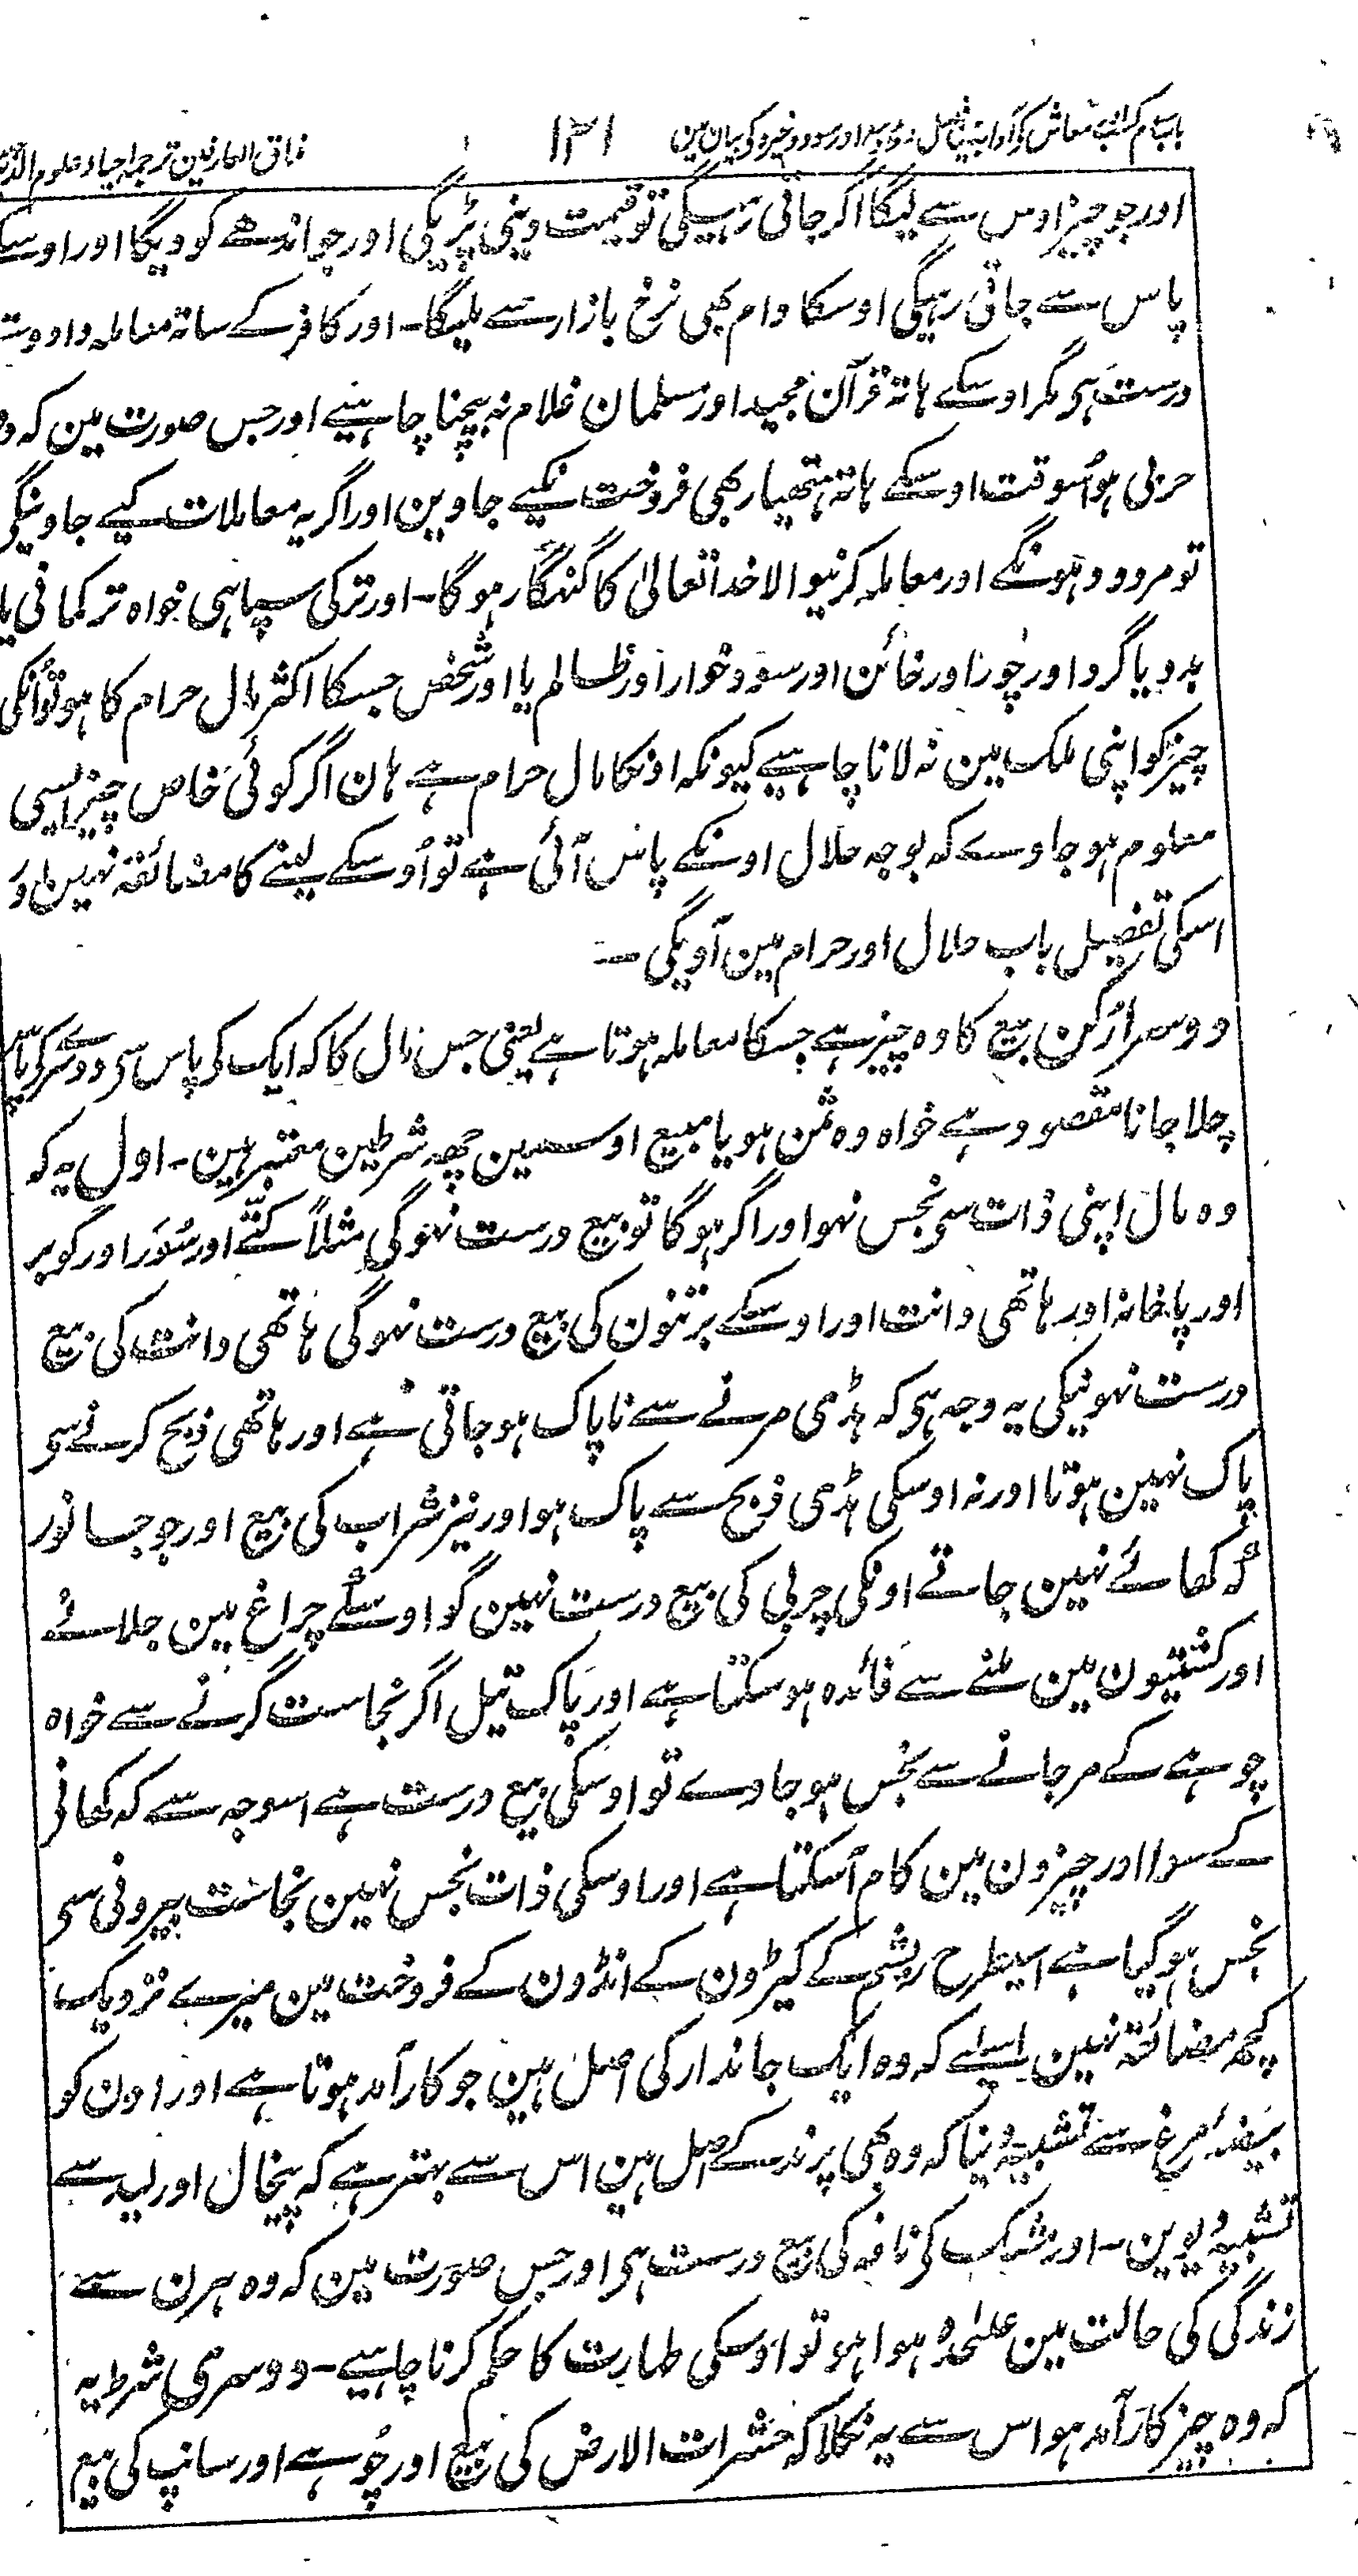 ۱۲۱
مذاق العارفین ترجمہ احیاء علوم الدین
اور جو چیز اوس سے لیگا اگر جاتی رہیگی تو قیمت دینی پڑیگی اور جو اندھے کو دیگا اور اوسکے
پاس سے جاتی رہیگی اوسکا دام بھی نرخ بازار سے ملیگا۔ اور کافر کے ساتھ معاملہ داد وست
درست ہی مگر اوسکے ہاتھ قرآن مجید اور مسلمان غلام نہ بیچنا چاہئیے اور جس صورت مین کہ وہ
حربی ہو اُسوقت اوسکے ہاتھ ہتھیار بھی فروخت نکیے جاوین اور اگر یہ معاملات کیے جاوینگے
تو مردود ہونگے اور معاملہ کرنیوالا خدا تعالیٰ کا گنہگار ہوگا۔ اور ترکی سپاہی خواہ ترکمانی یا
بدو یا گرد اور چور اور خائن اور سود خوار اور ظالم یا اور شخص جسکا اکثر مال حرام کا ہو تو اُنکی
چیز کو اپنی ملک مین نہ لانا چاہیے کیونکہ اونکا مال حرام ہے ہان اگر کوئی خاص چیز ایسی
معلوم ہو جاوے کہ بوجہ حلال اونکے پاس آئی ہے تو اُوسکے لینے کا مضائقہ نہین اور
اسکی تفصیل باب حلال اور حرام مین آویگی ۔
دوسرا رکن بیع کا وہ چیز ہے جسکا معاملہ ہوتا ہے یعنی جس مال کا کہ ایک کی پاس سی دوسرے کی پاس
چلا جانا مقصود ہے خواہ وہ ثمن ہو یا مبیع اوسمین چھہ شرطین معتبر ہین۔ اول یہ کہ
وہ مال اپنی ذات سی نجس نہو اور اگر ہوگا تو بیع درست نہوگی مثلاً کتّے اور سُوَر اور گوبر
اور پاخانہ اور ہاتھی دانت اور اوسکے برتنون کی بیع درست نہوگی ہاتھی دانت کی بیع
درست نہونیکی یہ وجہ ہی کہ ہڈی مرنے سے ناپاک ہو جاتی ہے اور ہاتھی ذبح کرنے سی
پاک نہین ہوتا اور نہ اوسکی ہڈی ذبح سے پاک ہو اور نیز شراب کی بیع اور جو جانور
کہ کھائے نہین جاتے اونکی چربی کی بیع درست نہین گو اوس سے چراغ مین جلائے
اور کشتیون مین ملنے سے فائدہ ہو سکتا ہے اور پاک تیل اگر نجاست گرنے سے خواہ
چوہے کے مر جانے سے نجس ہو جاوے تو اوسکی بیع درست ہے اسوجہ سے کہ کھانی
کے سوا اور چیزون مین کام آسکتا ہے اور اوسکی ذات نجس نہین نجاست بیرونی سی
نجس ہو گیا ہے اسیطرح ریشم کے کیڑون کے انڈون کے فروخت مین میرے نزدیک
کچھ مضائقہ نہین اسلیے کہ وہ ایک جاندار کی اصل ہین جو کارآمد ہوتا ہے اور اون کو
بیضۂ مرغ سے تشبیہ دینا کہ وہ بھی پرند کے اصل ہین اس سے بہتر ہے کہ پیخال اور لید سے
تشبیہ دیوین۔ اور مشک کی نافہ کی بیع درست ہی اور جس صورت مین کہ وہ ہرن سے
زندگی کی حالت مین علیٰحدہ ہوا ہو تو اوسکی طہارت کا حکم کرنا چاہیے۔ دوسری شرط یہ
کہ وہ چیز کارآمد ہو اس سے یہ نکلا کہ حشرات الارض کی بیع اور چوہے اور سانپ کی بیع